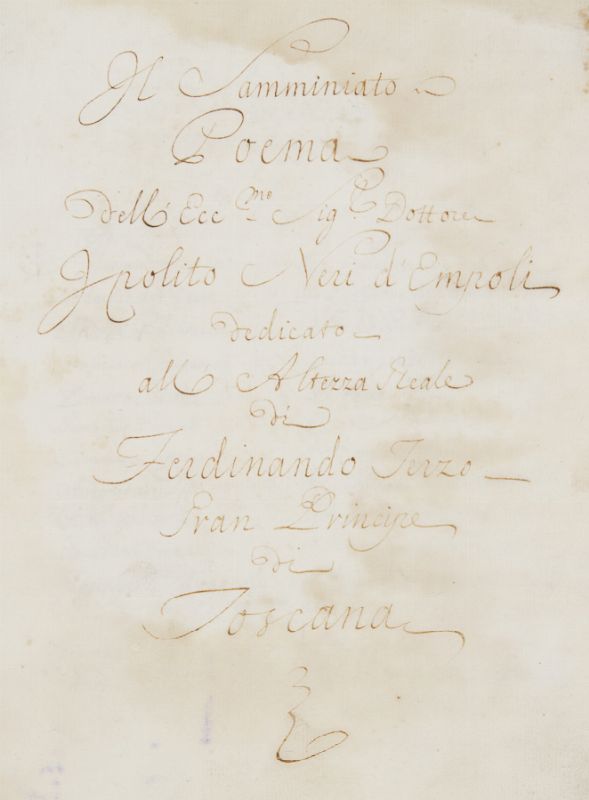 Il Samminiato
Poema
dell' Ecc.mo Sig.e Dottore
Ipolito Neri d'Empoli
dedicato
all' Altezza Reale
di
Ferdinando Terzo
Gran Principe
di
Toscana